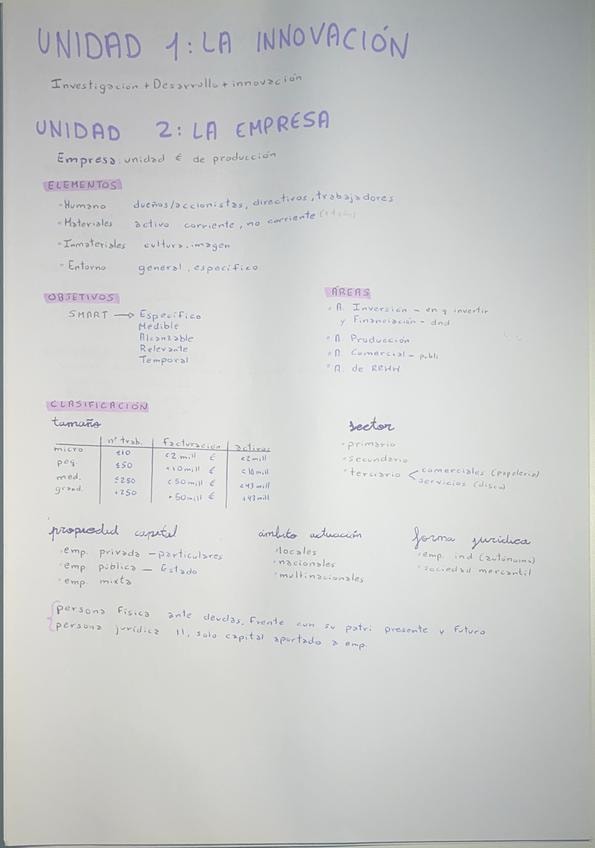 UNIDAD 1: LA INNOVACIÓN
Investigacion + Desarrollo + innovación
UNIDAD 2: LA EMPRESA
Empresa: unidad € de producción
ELEMENTOS
· Humano dueños/accionistas, directivos, trabajadores
· Materiales activo corriente, no corriente
· Inmateriales cultura, imagen
· Entorno general, específico
OBJETIVOS
SMART → Específico
Medible
Alcanzable
Relevante
Temporal
ÁREAS
· A. Inversión – en q invertir
y Financiación – dnd
· A. Producción
· A. Comercial – publi
· A. de RRHH
CLASIFICACIÓN
tamaño
nº trab. facturación activos
micro ≤10 <2 mill € <2 mill
peq ≤50 <10 mill € <10 mill
med. ≤250 <50 mill € <43 mill
grand. +250 +50 mill € +43 mill
sector
· primario
· secundario
· terciario < comerciales (papelería)
servicios (disco)
propiedad capital
· emp. privada – particulares
· emp. pública – Estado
· emp. mixta
ámbito actuación
· locales
· nacionales
· multinacionales
forma jurídica
· emp. ind (autónomo)
· sociedad mercantil
persona física ante deudas, frente con su patri presente y futuro
persona jurídica 11, solo capital aportado a emp.